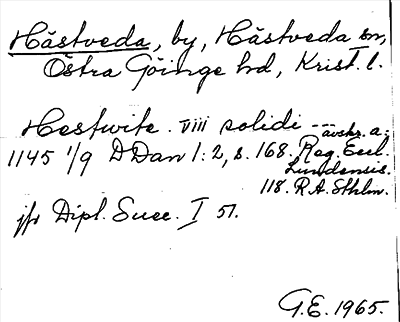 Hästveda, by, Hästveda sn,
Östra Göinge hd, Krist. l.
Hestwite. VIII solidi --- avskr. a:
1145 1/9 DDan 1:2, s. 168. Reg. Eccl.
Lundensis.
118. R.A. Sthlm.
jfr Dipl. Suec. I 51.
G.E. 1965.